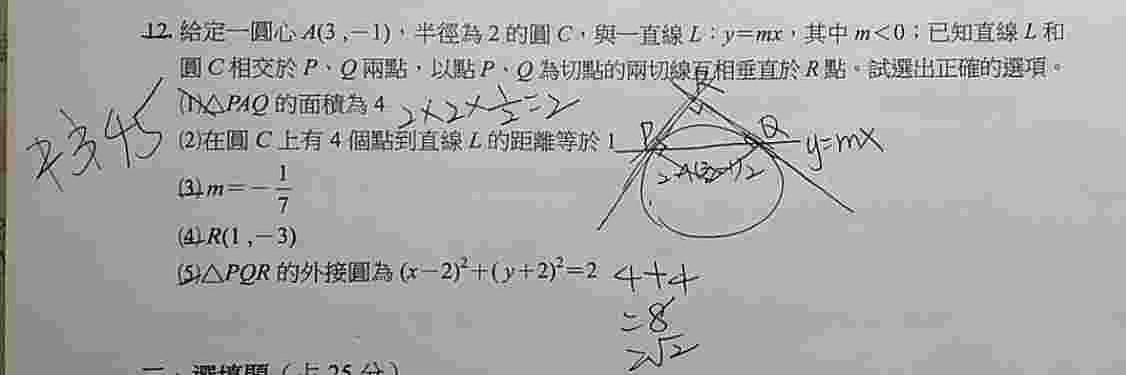 12. 給定一圓心 A(3,-1),半徑為 2 的圓 C,與一直線 L:y=mx,其中 m<0;已知直線 L 和
圓 C 相交於 P、Q 兩點,以點 P、Q 為切點的兩切線互相垂直於 R 點。試選出正確的選項。
(1)△PAQ 的面積為 4 2×2×1/2=2
(2)在圓 C 上有 4 個點到直線 L 的距離等於 1
(3) m=-1/7
(4) R(1,-3)
(5)△PQR 的外接圓為 (x-2)²+(y+2)²=2
45
R
P
Q
y=mx
2 A(3,-1) 2
4+4
=8
2√2
二、選填題(占 25 分)